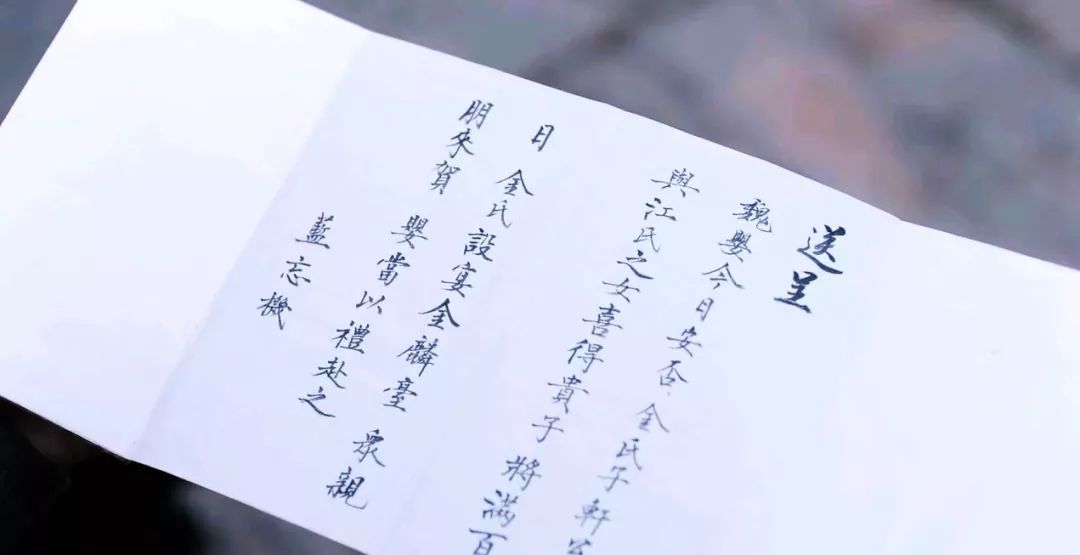 送呈
魏嬰今日安否.金氏子軒
與江氏之女喜得貴子 將滿百
日 金氏設宴金麟臺 衆親
朋來賀 嬰當以禮赴之
藍忘機